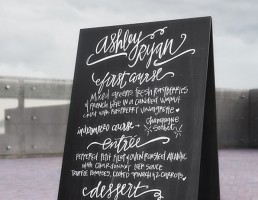 ashley & ryan
first course
mixed greens, fresh raspberries
& french brie in a candied walnut
with raspberry vinaigrette
intermezzo course → champagne
sorbet
entrée
peppered petit filet & oven roasted atlantic
with chardonnay leek sauce
potatoes, spinach & carrots
dessert